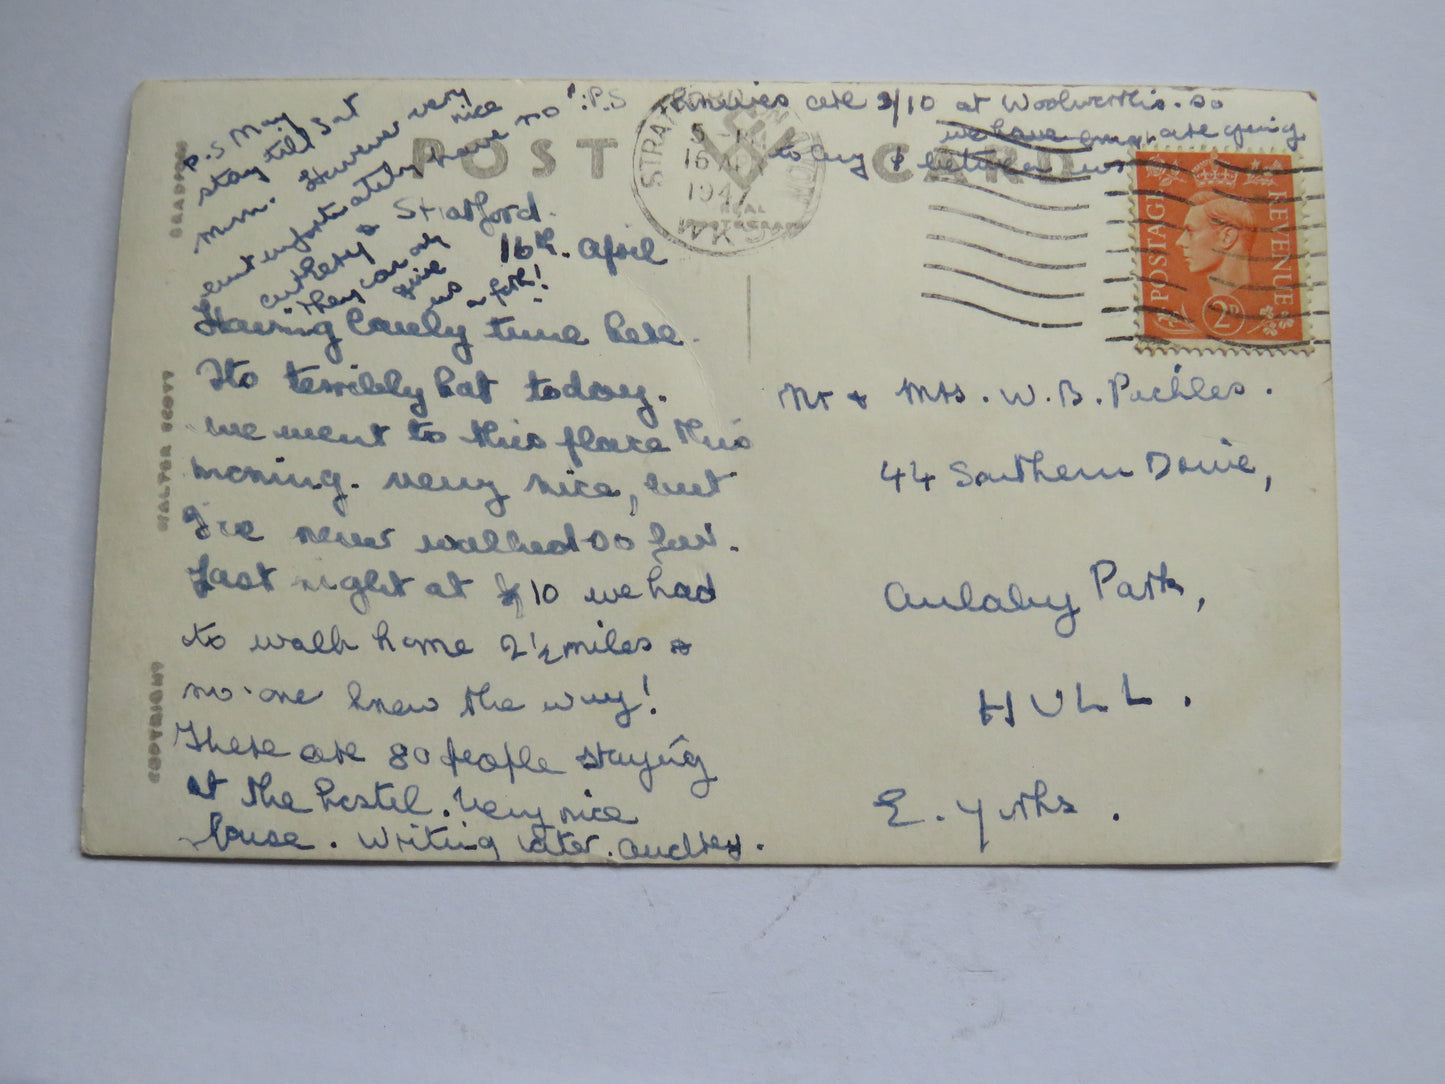 P.S May
stay till Sat
morn. However very nice
but unfortunately have no
cutlery &
they can only give
us a fork!
P.S knives are 2/10 at Woolworths. so
we have are going
to buy 1 between us
POST CARD
STRATFORD-UPON-AVON
5 - PM
16 AP
1947
REAL
PHOTOGRAPH
POSTAGE REVENUE
2D
Stratford.
16th. April
Having lovely time here.
Its terribly hot today.
We went to this place this
morning. Very nice, but
I've never walked so far.
Last night at 10 we had
to walk home 2½ miles &
no-one knew the way!
There are 80 people staying
at the hostel. Very nice
house. Writing later. Audrey.
Mr & Mrs. W. B. Peckles.
44 Southern Drive,
Anlaby Park,
HULL.
E. Yorks.
COPYRIGHT
WALTER SCOTT
BRADFORD